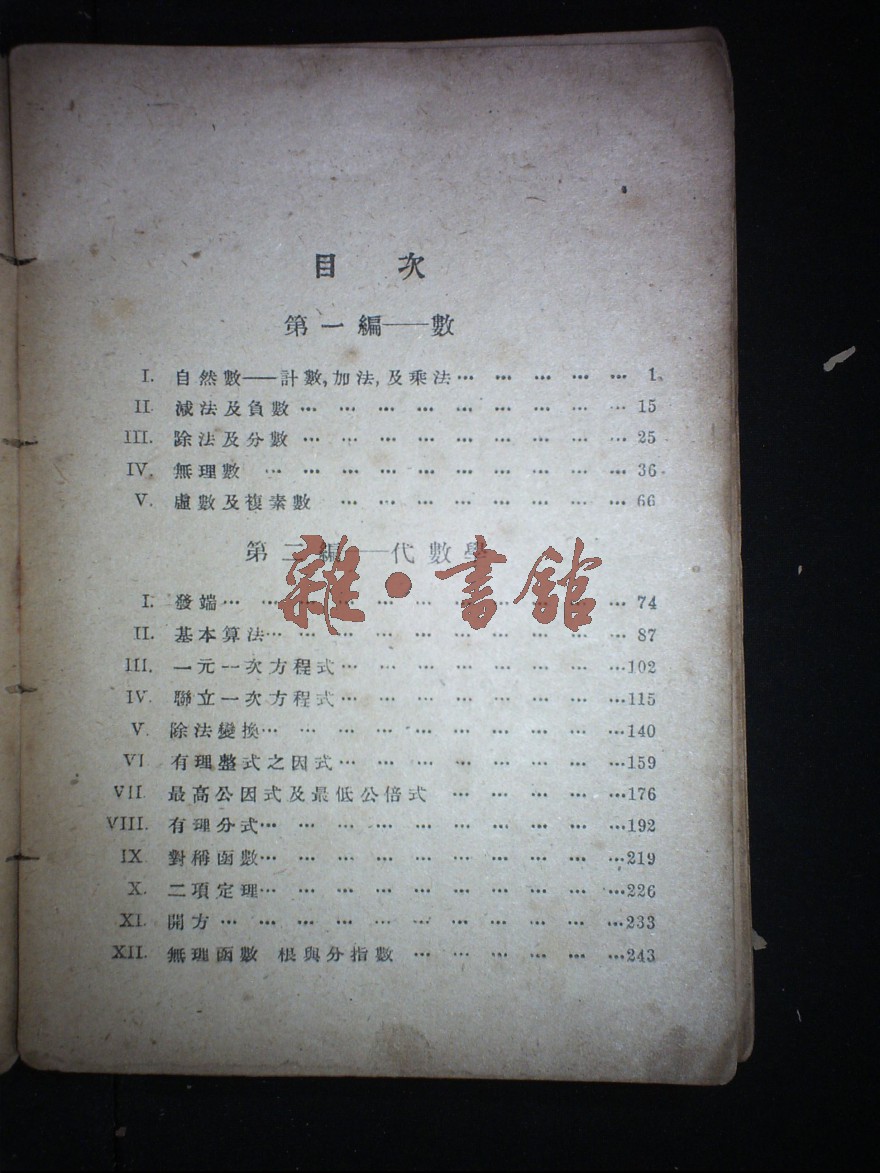 目 次
第一編——數
I. 自然數——計數,加法,及乘法 … … … … … 1
II. 減法及負數 … … … … … … … … … 15
III. 除法及分數 … … … … … … … … … 25
IV. 無理數 … … … … … … … … … … 36
V. 虛數及複素數 … … … … … … … … 66
第二編——代數學
雜·書館
I. 發端 … … … … … … … … … … … 74
II. 基本算法 … … … … … … … … … … 87
III. 一元一次方程式 … … … … … … … … 102
IV. 聯立一次方程式 … … … … … … … … 115
V. 除法變換 … … … … … … … … … … 140
VI. 有理整式之因式 … … … … … … … … 159
VII. 最高公因式及最低公倍式 … … … … … 176
VIII. 有理分式 … … … … … … … … … … 192
IX. 對稱函數 … … … … … … … … … … 219
X. 二項定理 … … … … … … … … … … 226
XI. 開方 … … … … … … … … … … … 233
XII. 無理函數 根與分指數 … … … … … … 243